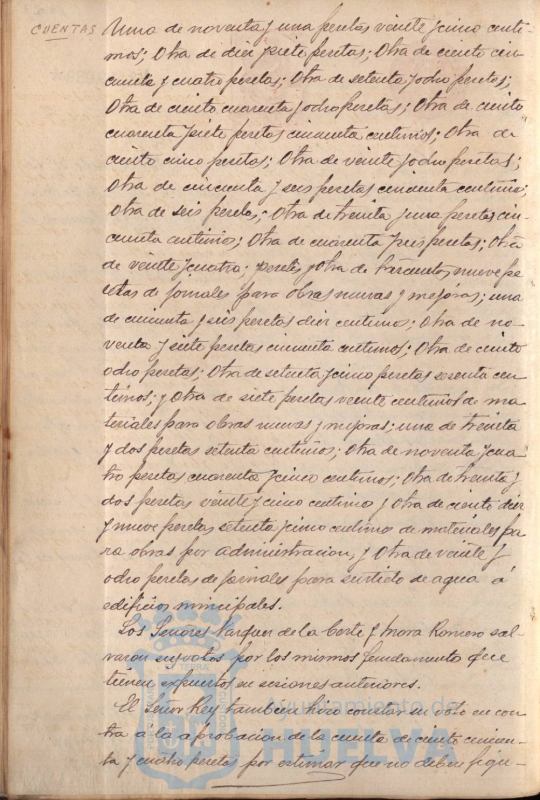 CUENTAS
Una de noventa y una pesetas veinte y cinco centi-
mos; Otra de diez y siete pesetas; Otra de ciento cin-
cuenta y cuatro pesetas; Otra de setenta y ocho pesetas;
Otra de ciento cuarenta y ocho pesetas; Otra de ciento
cuarenta y siete pesetas cincuenta centimos; Otra de
ciento cinco pesetas; Otra de veinte y ocho pesetas;
Otra de cincuenta y seis pesetas cincuenta centimos;
Otra de seis pesetas; Otra de treinta y una pesetas cin-
cuenta centimos; Otra de cuarenta y seis pesetas; Otra
de veinte y cuatro; pesetas y otra de trescientas nueve pe
setas de jornales para obras nuevas y mejoras; una
de cincuenta y seis pesetas diez centimos; Otra de no-
venta y siete pesetas cincuenta centimos; Otra de ciento
ocho pesetas; Otra de setenta y cinco pesetas sesenta cen-
timos; y Otra de siete pesetas veinte centimos de ma-
teriales para obras nuevas y mejoras; una de treinta
y dos pesetas setenta centimos; Otra de noventa y cua
tro pesetas cuarenta y cinco centimos; Otra de treinta y
dos pesetas veinte y cinco centimos y Otra de ciento diez
y nueve pesetas setenta y cinco centimos de materiales pa
ra obras por administracion, y Otra de veinte y
ocho pesetas de jornales para surtido de agua á
edificios municipales.
Los Señores Vazquez de la Corte y Mora Romero sal-
varon sus votos por los mismos fundamentos que
tienen expuestos en sesiones anteriores.
El Señor Rey tambien hizo constar su voto en con
tra á la aprobacion de la cuenta de ciento cincuen-
ta y cuatro pesetas por estimar que no deben figu-
Ayuntamiento de
HUELVA